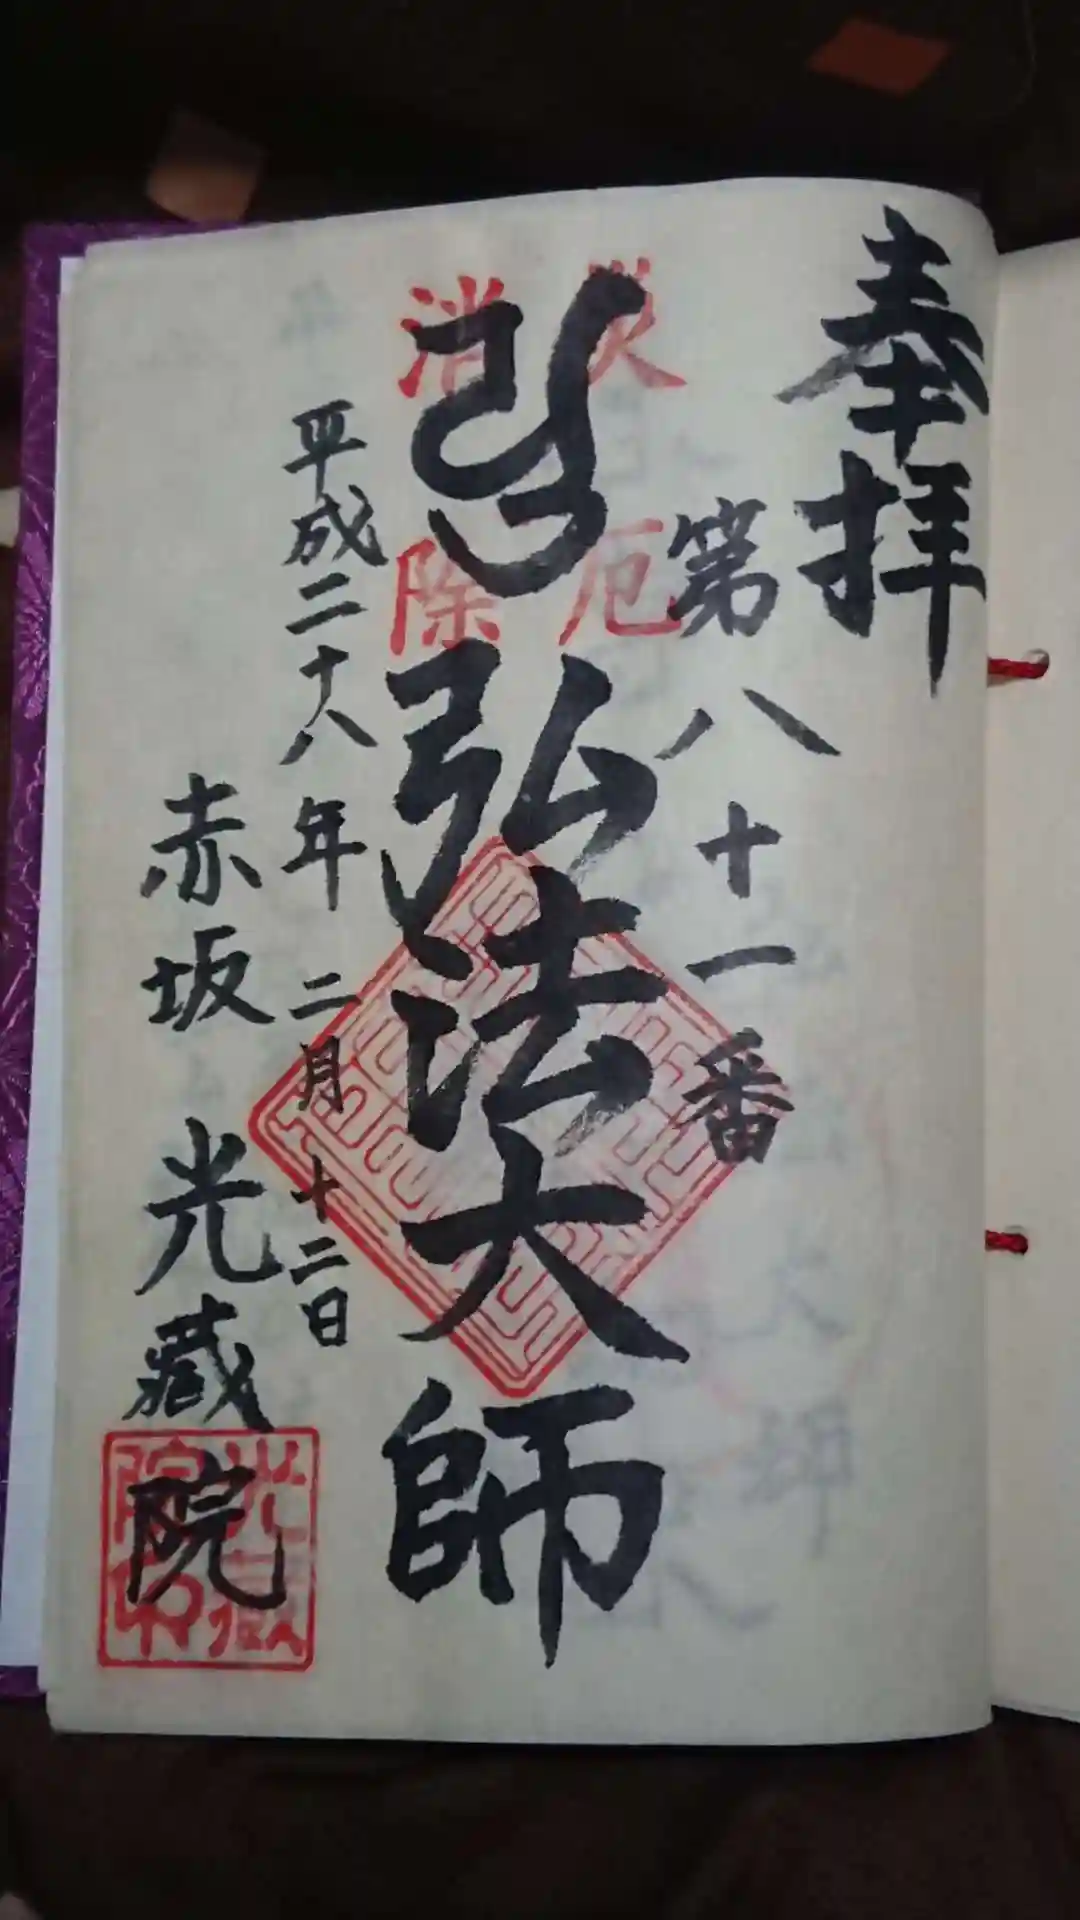 奉拝
第八十一番
災厄
消除
弘法大師
平成二十八年二月十二日
赤坂 光蔵院